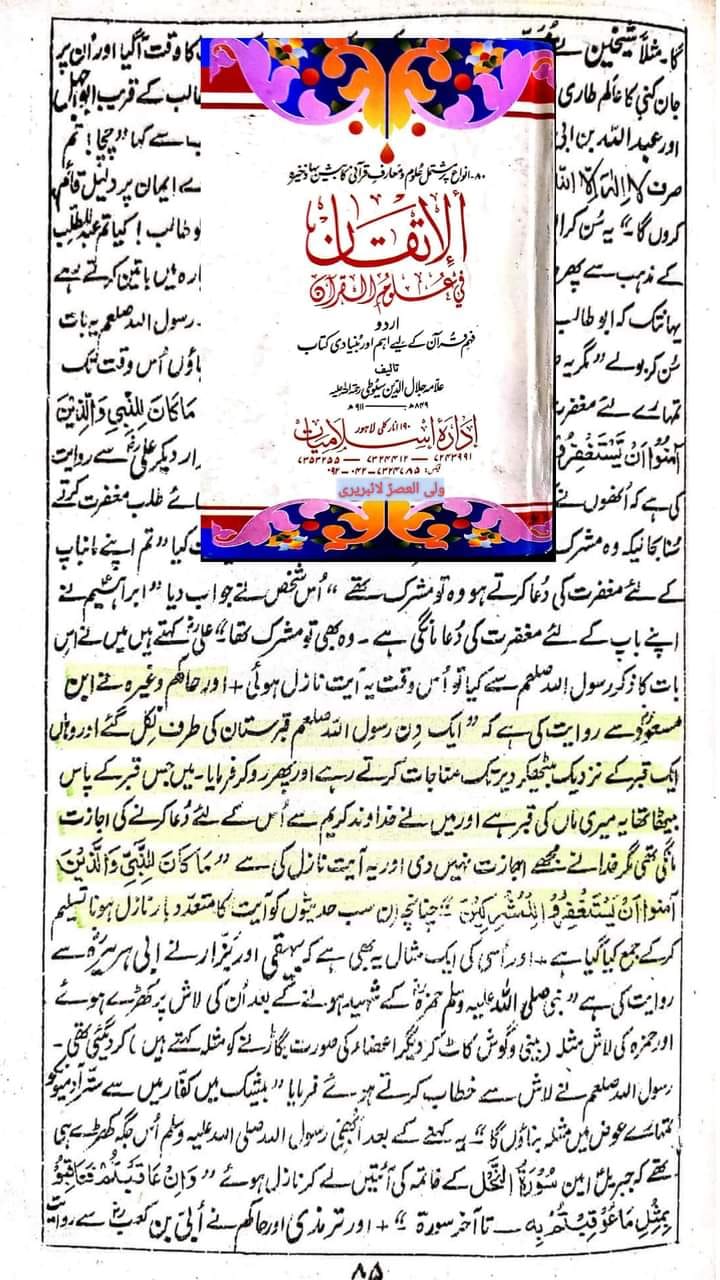 گا۔ مثلاً شیخین نے
کا وقت آگیا اور اُن پر
جان کنی کا عالم طاری
طالب کے قریب ابوجہل
اور عبد اللہ بن ابی
سے کہا "چچا! تم
صرف لا الہ الا اللہ
ے ایمان پر دلیل قائم
کروں گا۔" یہ سُن کر ا
و طالب! کیا تم عبد المطلب
کے مذہب سے پھر
ارہ میں باتیں کرتے رہے
یہانتک کہ ابو طالب
رسول اللہ صلعم یہ بات
سُن کر بولے "مگر یہ
ہاؤں اُس وقت تک
تمہارے لئے مغفرت
مَا كَانَ لِلنَّبِيِّ وَالَّذِيْنَ
آمَنُوا أَنْ يَسْتَغْفِرُوْا
ار دیگر علی رض سے روایت
کی ہے کہ اُنھوں نے
ئے طلب مغفرت کرتے
سُنا بحالیکہ وہ مشرک
کیا "تم اپنے مانباپ
۸۰۔ انواع پر مشتمل علوم و معارف قرآنی کا بیش بہا ذخیرہ
الإتقان
في علوم القرآن
اردو
فہم قرآن کے لیے اہم اور بنیادی کتاب
تالیف
علامہ جلال الدین سیوطی رحمۃ اللہ علیہ
۸۴۹ھ ــــ ۹۱۱ھ
ادارہ اسلامیات ۱۹۰ انار کلی لاہور
۷۲۴۳۹۹۱ ــ ۷۳۲۴۴۱۲ ــ ۷۳۵۳۲۵۵
فیکس: ۷۳۲۴۷۸۵-۰۴۲-۰۹۲
ولی العصرؑ لائبریری
کے لئے مغفرت کی دُعا کرتے ہو وہ تو مشرک تھے" اُس شخص نے جواب دیا "ابراہیم نے
اپنے باپ کے لئے مغفرت کی دُعا مانگی ہے۔ وہ بھی تو مشرک تھا" علی رض کہتے ہیں میں نے اس
بات کا ذکر رسول اللہ صلعم سے کیا تو اُس وقت یہ آیت نازل ہوئی + اور حاکم وغیرہ نے ابن
مسعود رض سے روایت کی ہے کہ "ایک دن رسول اللہ صلعم قبرستان کی طرف نکل گئے اور وہاں
ایک قبر کے نزدیک بیٹھکر دیر تک مناجات کرتے رہے اور پھر رو کر فرمایا۔ میں جس قبر کے پاس
بیٹھا تھا یہ میری ماں کی قبر ہے اور میں نے خداوند کریم سے اُس کے لئے دُعا کرنے کی اجازت
مانگی تھی مگر خدا نے مجھے اجازت نہیں دی اور یہ آیت نازل کی ہے "مَا كَانَ لِلنَّبِيِّ وَالَّذِيْنَ
آمَنُوا أَنْ يَسْتَغْفِرُوْا لِلْمُشْرِكِيْنَ" چنانچہ ان سب حدیثوں کو آیت کا متعدد بار نازل ہونا تسلیم
کر کے جمع کیا گیا ہے + اور اُسی کی ایک مثال یہ بھی ہے کہ بیہقی اور بزّار نے ابی ہریرہ رض سے
روایت کی ہے "نبی صلی اللہ علیہ وسلم حمزہ رض کے شہید ہونے کے بعد اُن کی لاش پر کھڑے ہوئے
اور حمزہ کی لاش مثلہ (بینی و گوش کاٹ کر دیگر اعضاء کی صورت بگاڑنے کو مثلہ کہتے ہیں) کر دیگئی تھی۔
رسول اللہ صلعم نے لاش سے خطاب کرتے ہوئے فرمایا "بیشک میں کفار میں سے ستّر آدمیونکو
تمہارے عوض میں مثلہ بناؤں گا"۔ یہ کہنے کے بعد ابھی رسول اللہ صلی اللہ علیہ وسلم اُس جگہ کھڑے ہی
تھے کہ جبریل امین سُورَةُ النَّحل کے خاتمہ کی آئتیں لے کر نازل ہوئے "وَاِنْ عَاقَبْتُمْ فَعَاقِبُوْ
بِمِثْلِ مَا عُوْقِبْتُمْ بِهِ ـــ تا آخر سورۃ "+ اور ترمذی اور حاکم نے اُبَیّ بن کعب رض سے روایت
۸۵